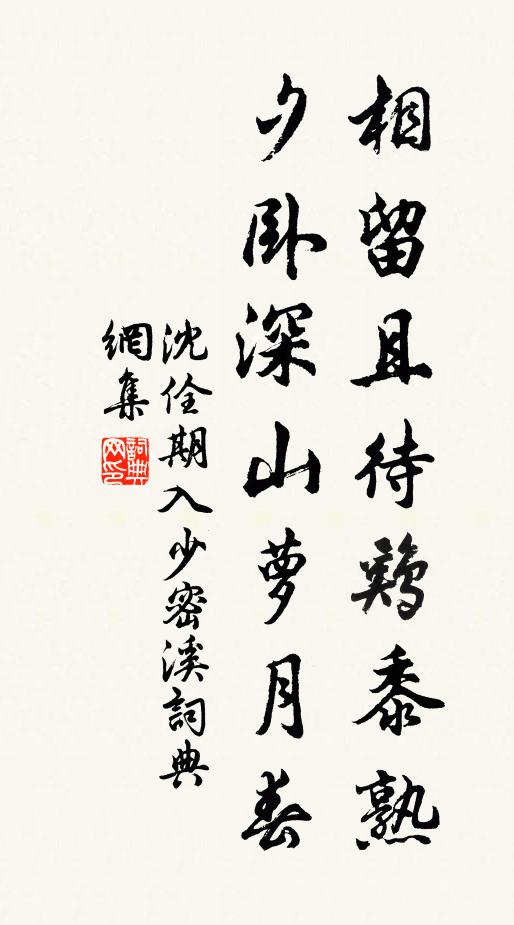 相留且待鷄黍熟
夕卧深山萝月春
沈佺期入少密溪詞典
網集
詞典
网印